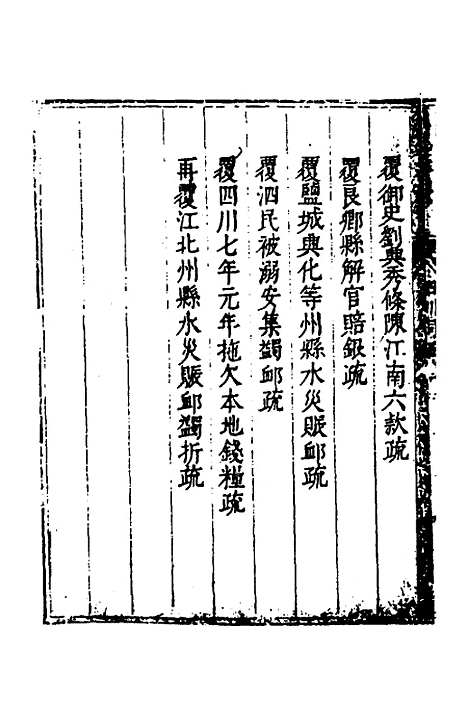 覆御史劉興秀條陳江南六款疏
覆良鄉縣解官賠銀疏
覆鹽城興化等州縣水災賑卹疏
覆泗民被溺安集蠲卹疏
覆四川七年元年拖欠本地錢糧疏
再覆江北州縣水災賑卹蠲折疏